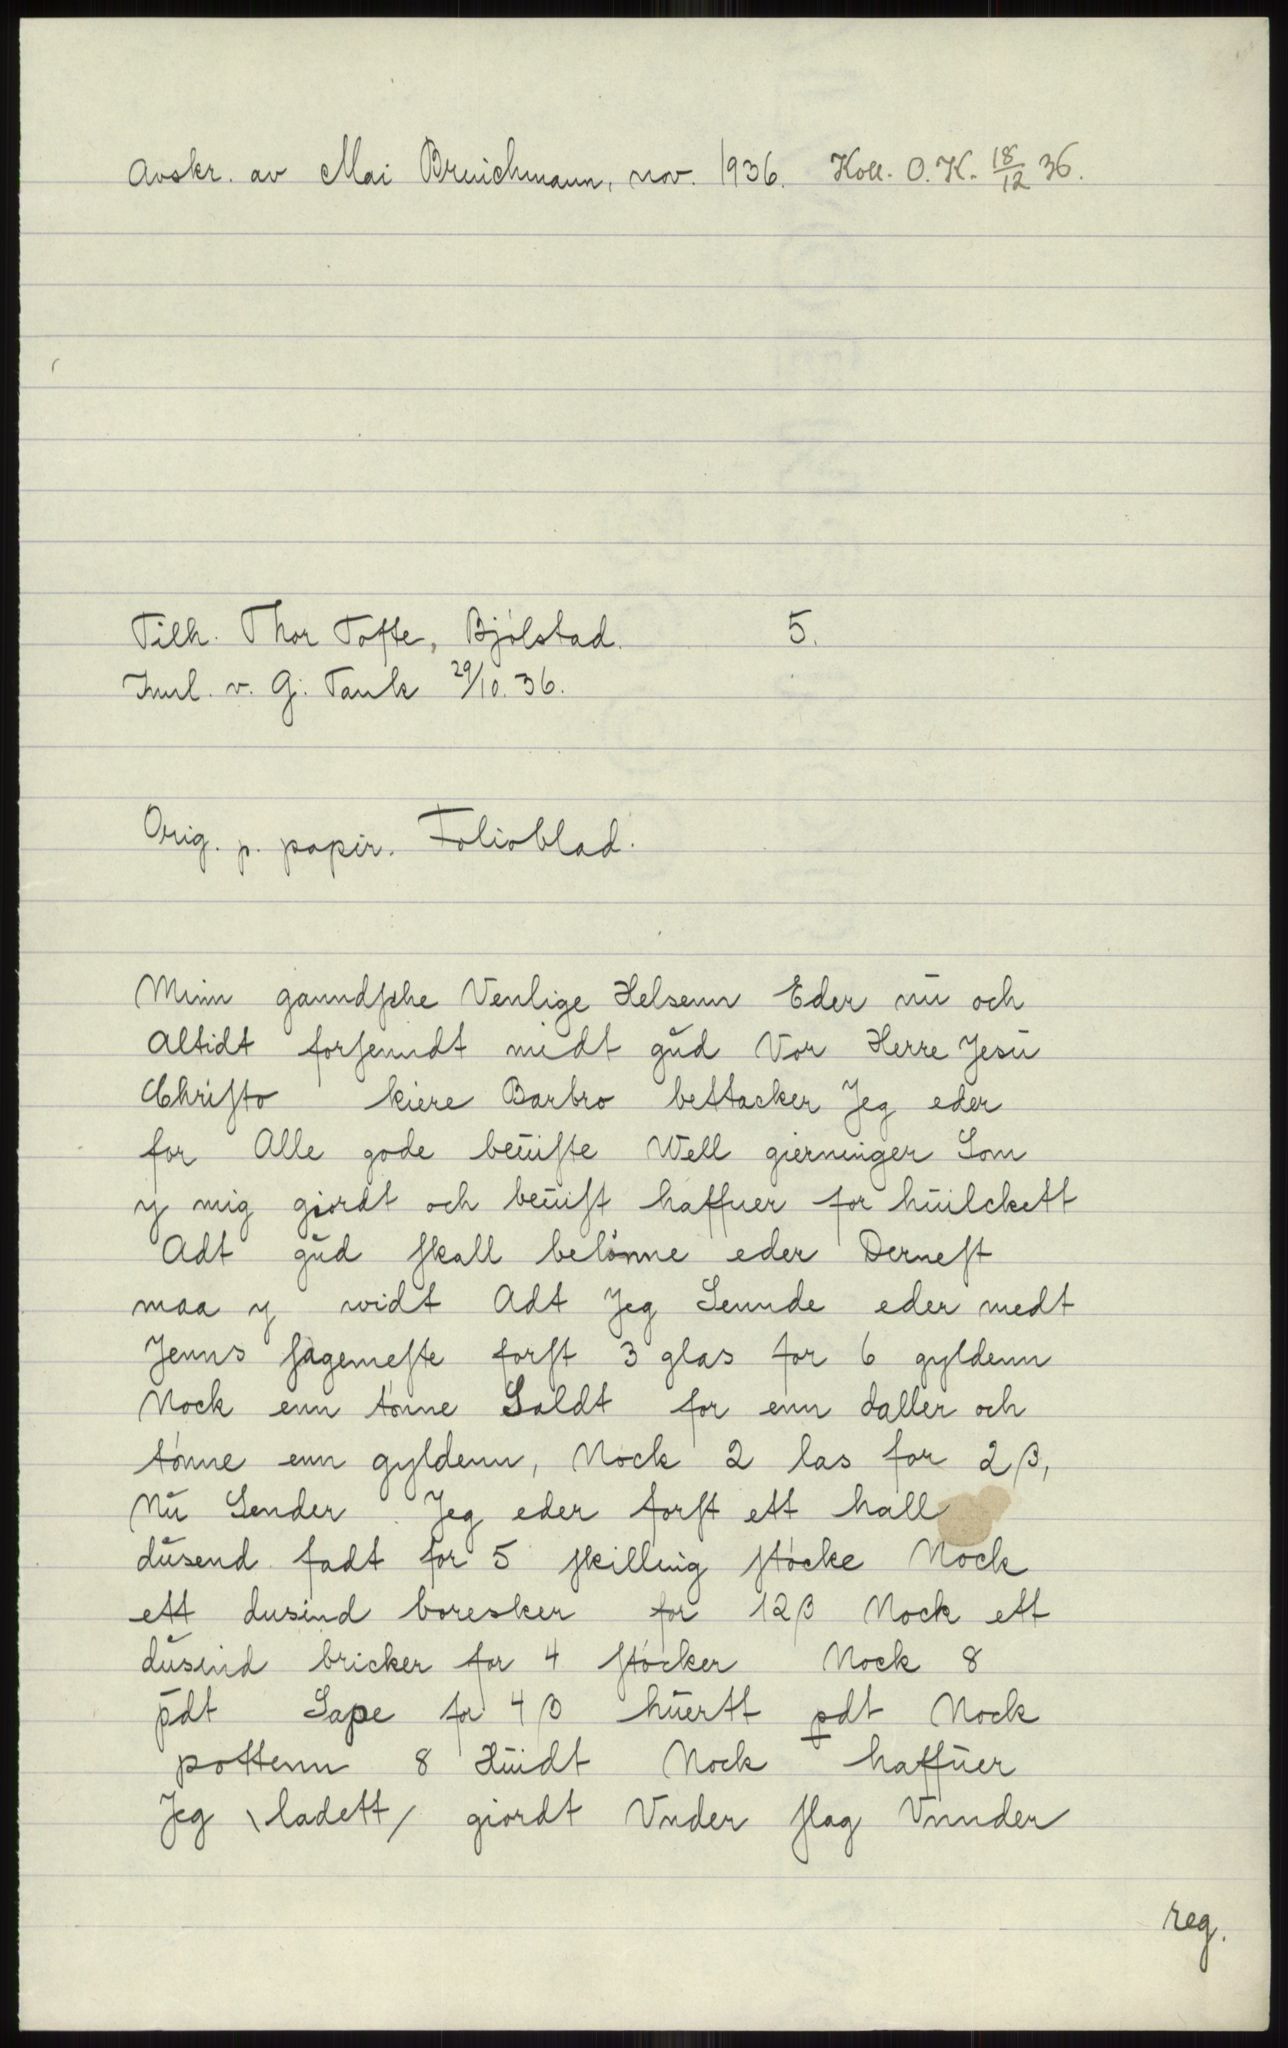 Avskr. av Mai Bruichmann, nov. 1936. Koll. O.K. 18/12 36.
Tilh. Thor Tofte, Bjølstad. 5.
Innl. v. G. Tank 29/10. 36.
Orig. p. papir. Folioblad.
Minn ganndſche Venlige Helsenn Eder nŭ och
Altidt forſenndt medt gŭd Vor Herre Jesŭ
Chriſto kiere Barbro bettacker Jeg eder
for Alle gode beŭiſte Well gierninger Som
y mig giordt och beŭiſt haffuer for hŭilckett
Adt gŭd ſkall belønne eder Derneſt
maa y widt Adt Jeg Sennde eder medt
Jenns ſagemeſte forſt 3 glas for 6 gyldenn
Nock enn tønne Saldt for enn daller och
tønne enn gyldenn, Nock 2 las for 2 β,
Nŭ Sender Jeg eder forſt ett hall
dŭsend fadt for 5 ſkilling ſtøcke Nock
ett dusind boresker for 12 β Nock ett
dŭsind bricker for 4 ſtøcker Nock 8
p̄dt Sape for 4 β hŭertt pdt Nock
pottenn 8 Hŭidt Nock haffŭer
Jeg \ladett/ giordt Vnder ſlag Vnnder
reg.